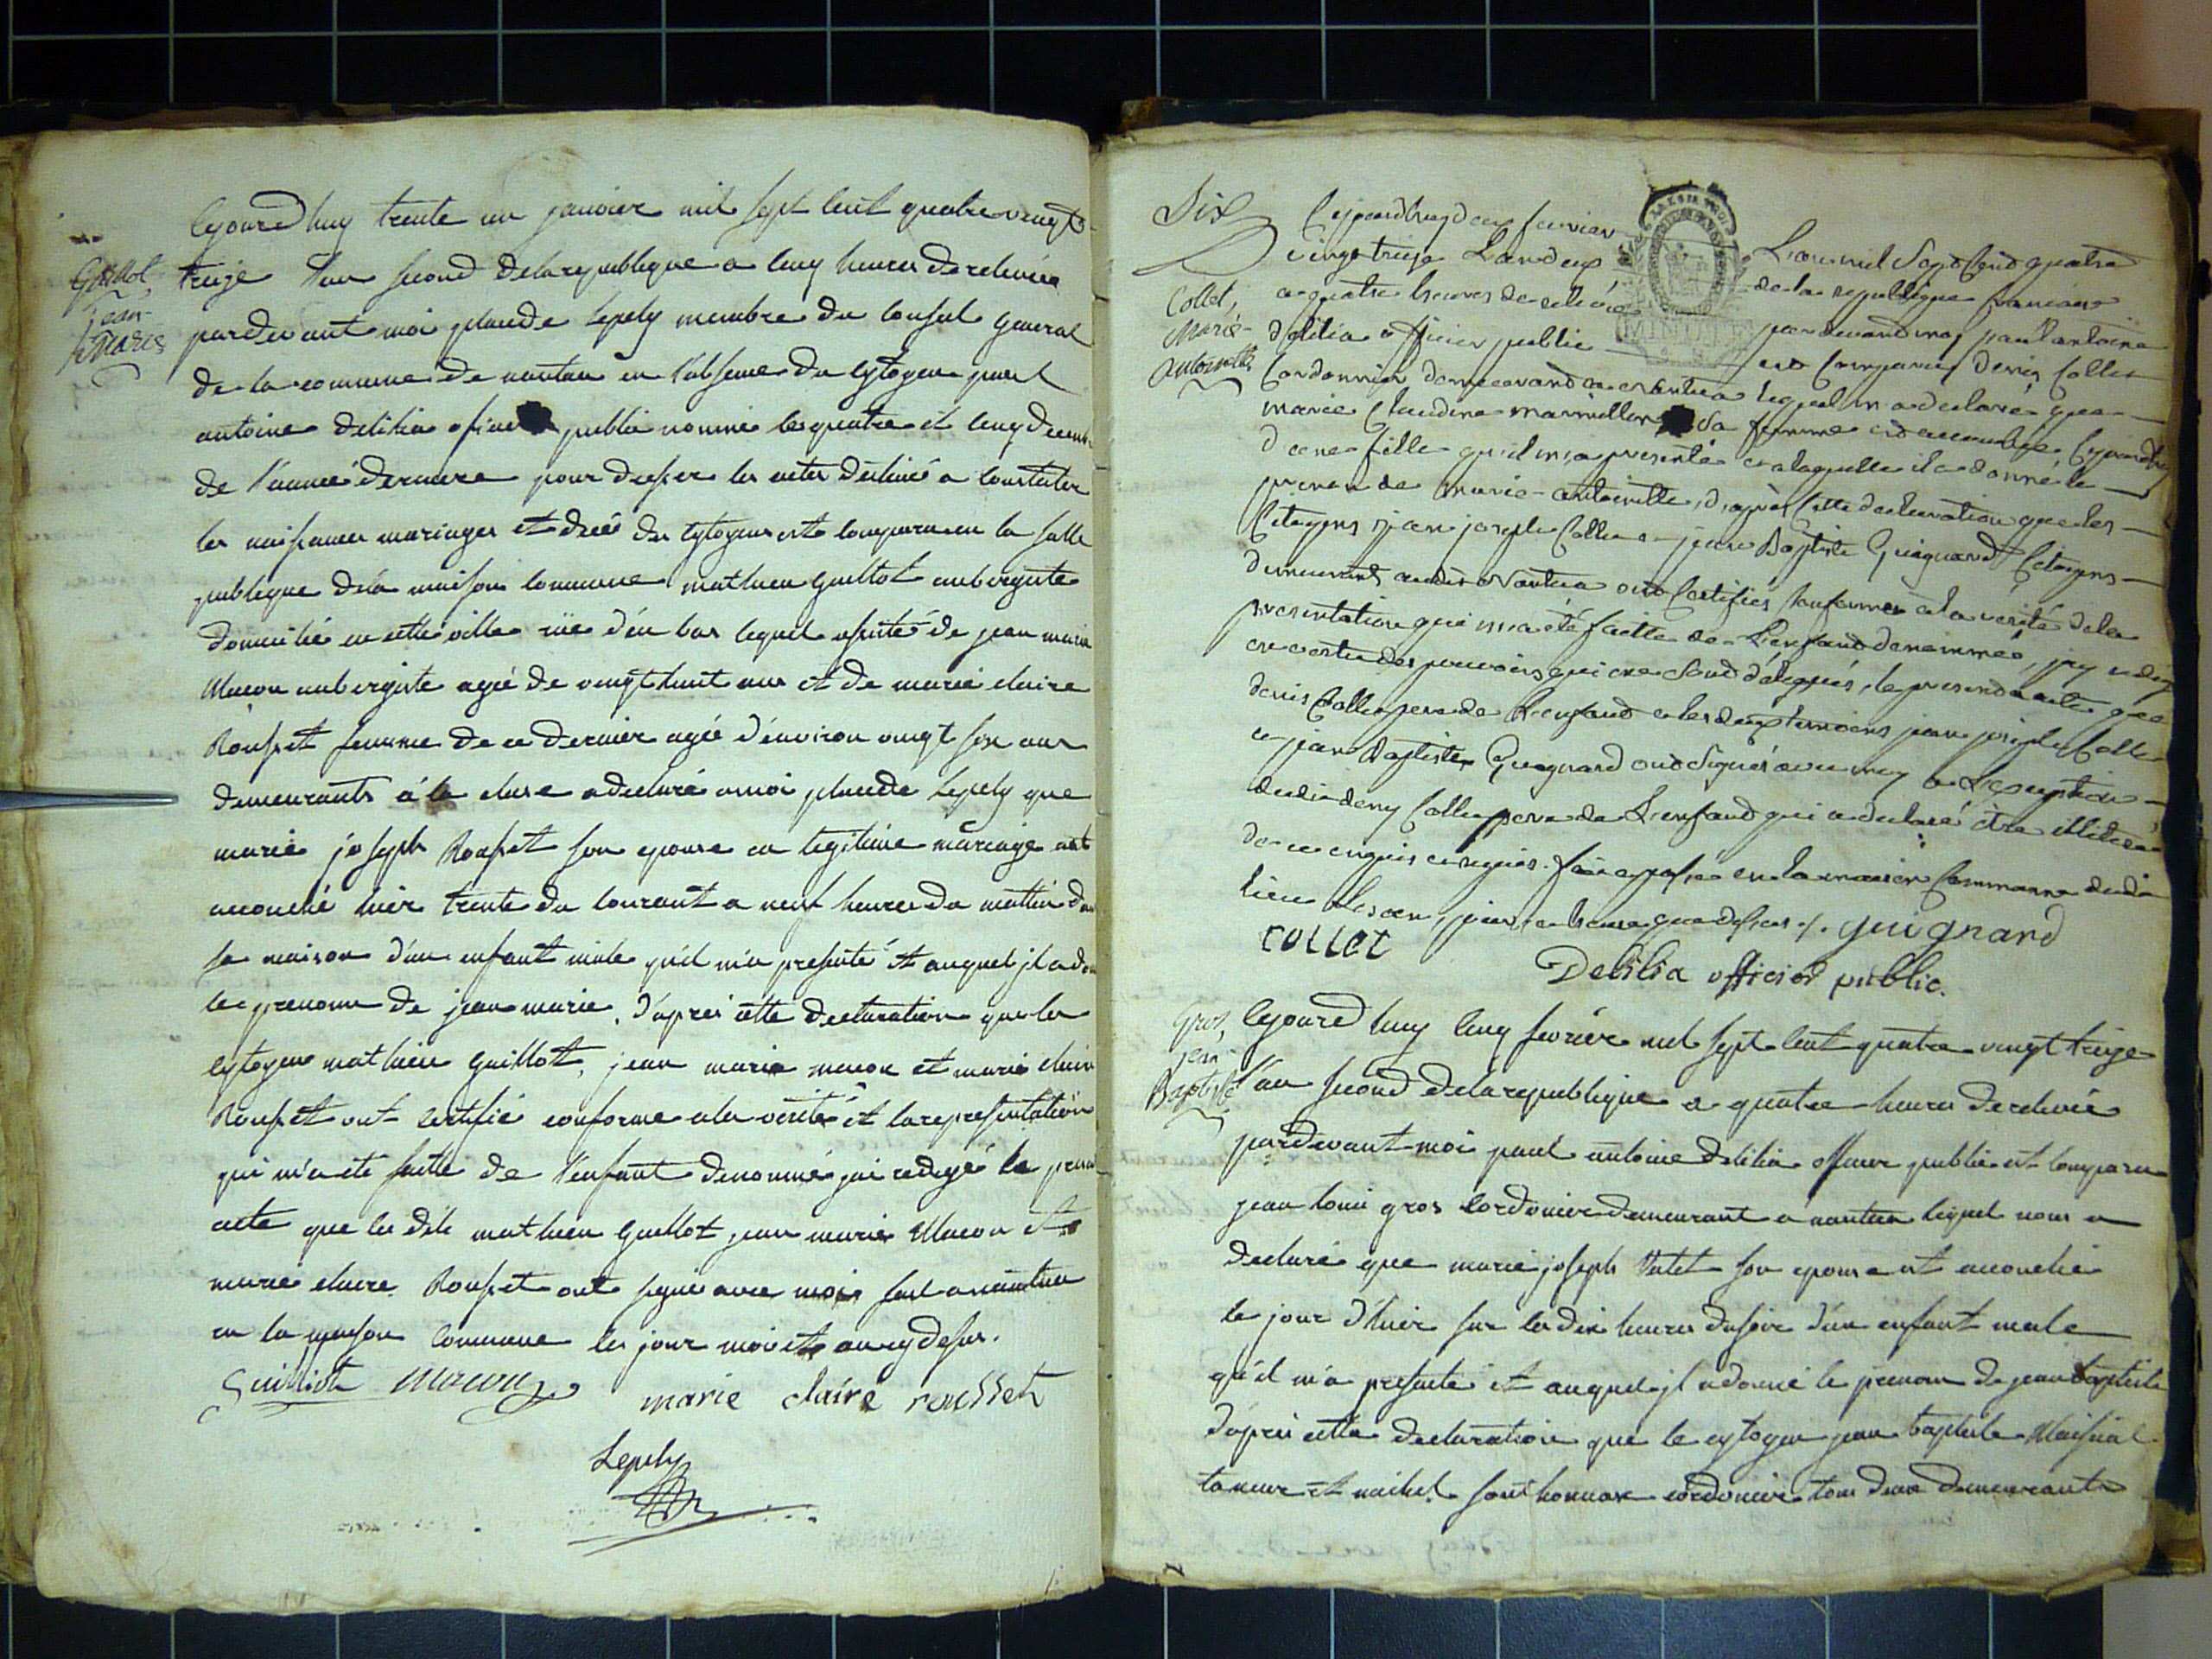 Cejourd huy trente un janvier mil sept cent quatre vingt
Guillot
jean
marie
treize l'an second de la republique a cinq heures de relevée
pardevant moi plaude Lepely membre du conseil general
de la commune de nantua en l'absence du cytoyen paul
antoine delilia oficier public nommé les quatre et cinq decemb
de l'année derniere pour dresser les actes destinés a constater
les naissances mariages et decés des cytoyens est comparu en la salle
publique de la maison commune mathieu guillot aubergiste
domicilié en cette ville rüe d'en bas lequel assisté de jean marie
Macon aubergiste agé de vingt huit ans et de marie claire
Rousset femme de ce dernier agée d'environ vingt six ans
demeurants à la cluse a declaré a moi plaude Lepely que
marie joseph Rousset son epouse en legitime mariage est
accouché hier trente du courant a neuf heures du mattin dans
sa maison d'un enfant mâle qu'il m'a presenté et auquel jl a don
le prenom de jean marie, d'après cette declaration que les
cytoyens mathieu Guillot, jean marie macon et marie claire
Rousset ont certifié conforme a la vérité et la representation
qui m'a été faitte de l'enfant denommé jai redigé le present
acte que les dits mathieu Guillot jean marie Macon et
marie claire Rousset ont signé avec moi fait a nantua
en la maison commune les jour mois et an cy dessus.
Guilliot macon
marie claire rousset
Lepely
Six
Cejourdhuy deux fevrier L'an mil Sept Cend quatre
vingt treize L'an deux de la republique francaise
Collet,
Marie-
antoinette
a quatre heures de relevée pardevand moy paul antoine
delilia officier public est Comparu denis Collet
Cordonnier demeurand a nantua lequel m'a declaré que
marie Claudine marmillon Sa femme est accouchée Cejourdhuy
d'une fille qu'il m'a presenté et a laquelle il a donné le
prenom de marie-antoinette, d'après Cette declaration que les
Citoyens jean joseph Collet et jean Baptiste Guignard Citoyens
demeurants audit Nantua ont Certifiés Conforme a la vérité de la
presentation qui m'a été faitte de L'enfand denommé, j'ay redigé
en vertu des pouvoirs qui me Sond délegués, le present acte que
denis Collet pere de L'enfand et les deux temoins jean joseph Collet
et jean Baptiste Guignard ond Signés avec moy a L'exception
dudit deny Collet pere de L'enfand qui a declaré être illiteré
de ce enquis et requis. fait et passé en la maison Commune dudit
lieu Les an, jour et heure que dessus ./. guignard
collet
Delilia officier public.
Gros,
jean
Baptiste
Cejourd huy cinq fevrier mil sept cent quatre vingt treize
l'an second de la republique a quatre heures de relevée
pardevant moi paul antoine delilia officier public est comparu
jean louis gros cordonier demeurant a nantua lequel nous a
declaré que marie joseph Vutet son epouse est accouchée
le jour d'hier sur les dix heures du soir d'un enfant male
qu'il m'a presenté et auquel jl a donné le prenom de jean baptiste
d'après cette declaration que le cytoyen jean baptiste
taneur et michel sonthonnax cordonier tous deux demeurants